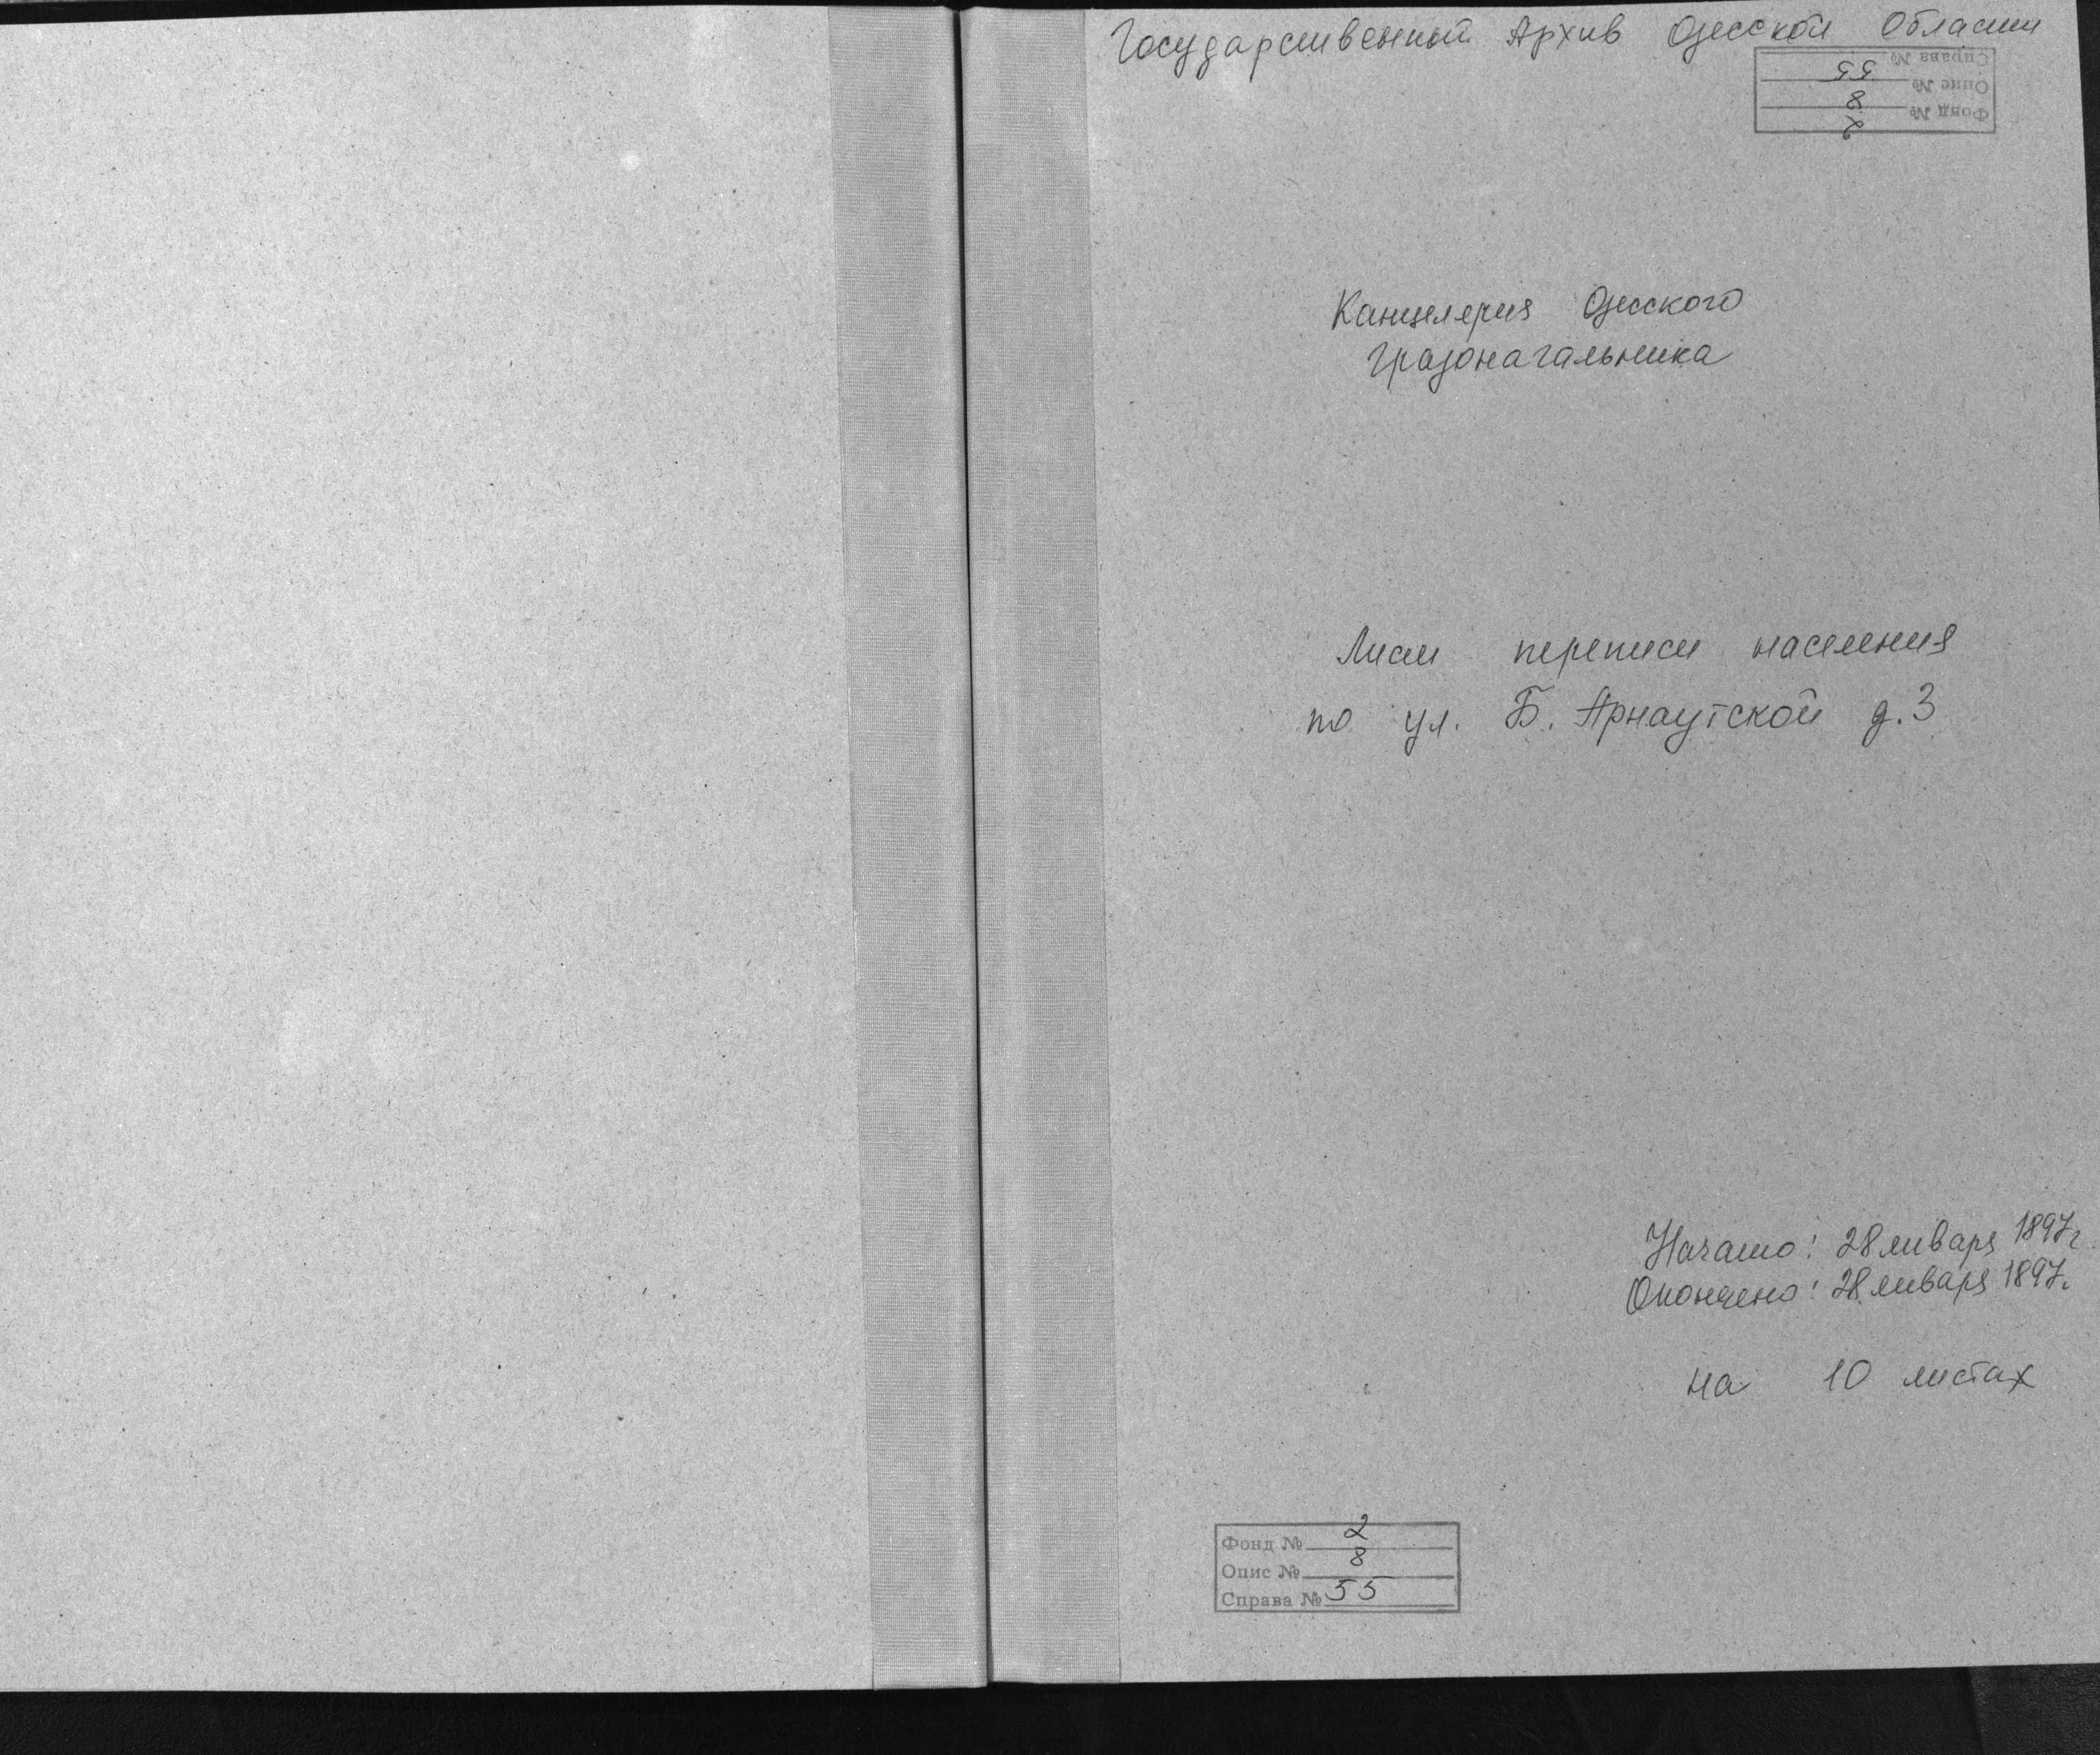 Государственный Архив Одесской Области
Справа № 55
Опис № 8
Фонд № 2
Канцелярия Одесского
Градоначальника
Листы переписи населения
по ул. Б. Арнаутской д. 3
Начато: 28 января 1897г.
Окончено: 28 января 1897г.
на 10 листах
Фонд № 2
Опис № 8
Справа № 55